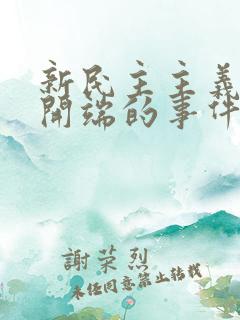 新民主主義
開端的事件
謝荣烈
未经同意禁止转载